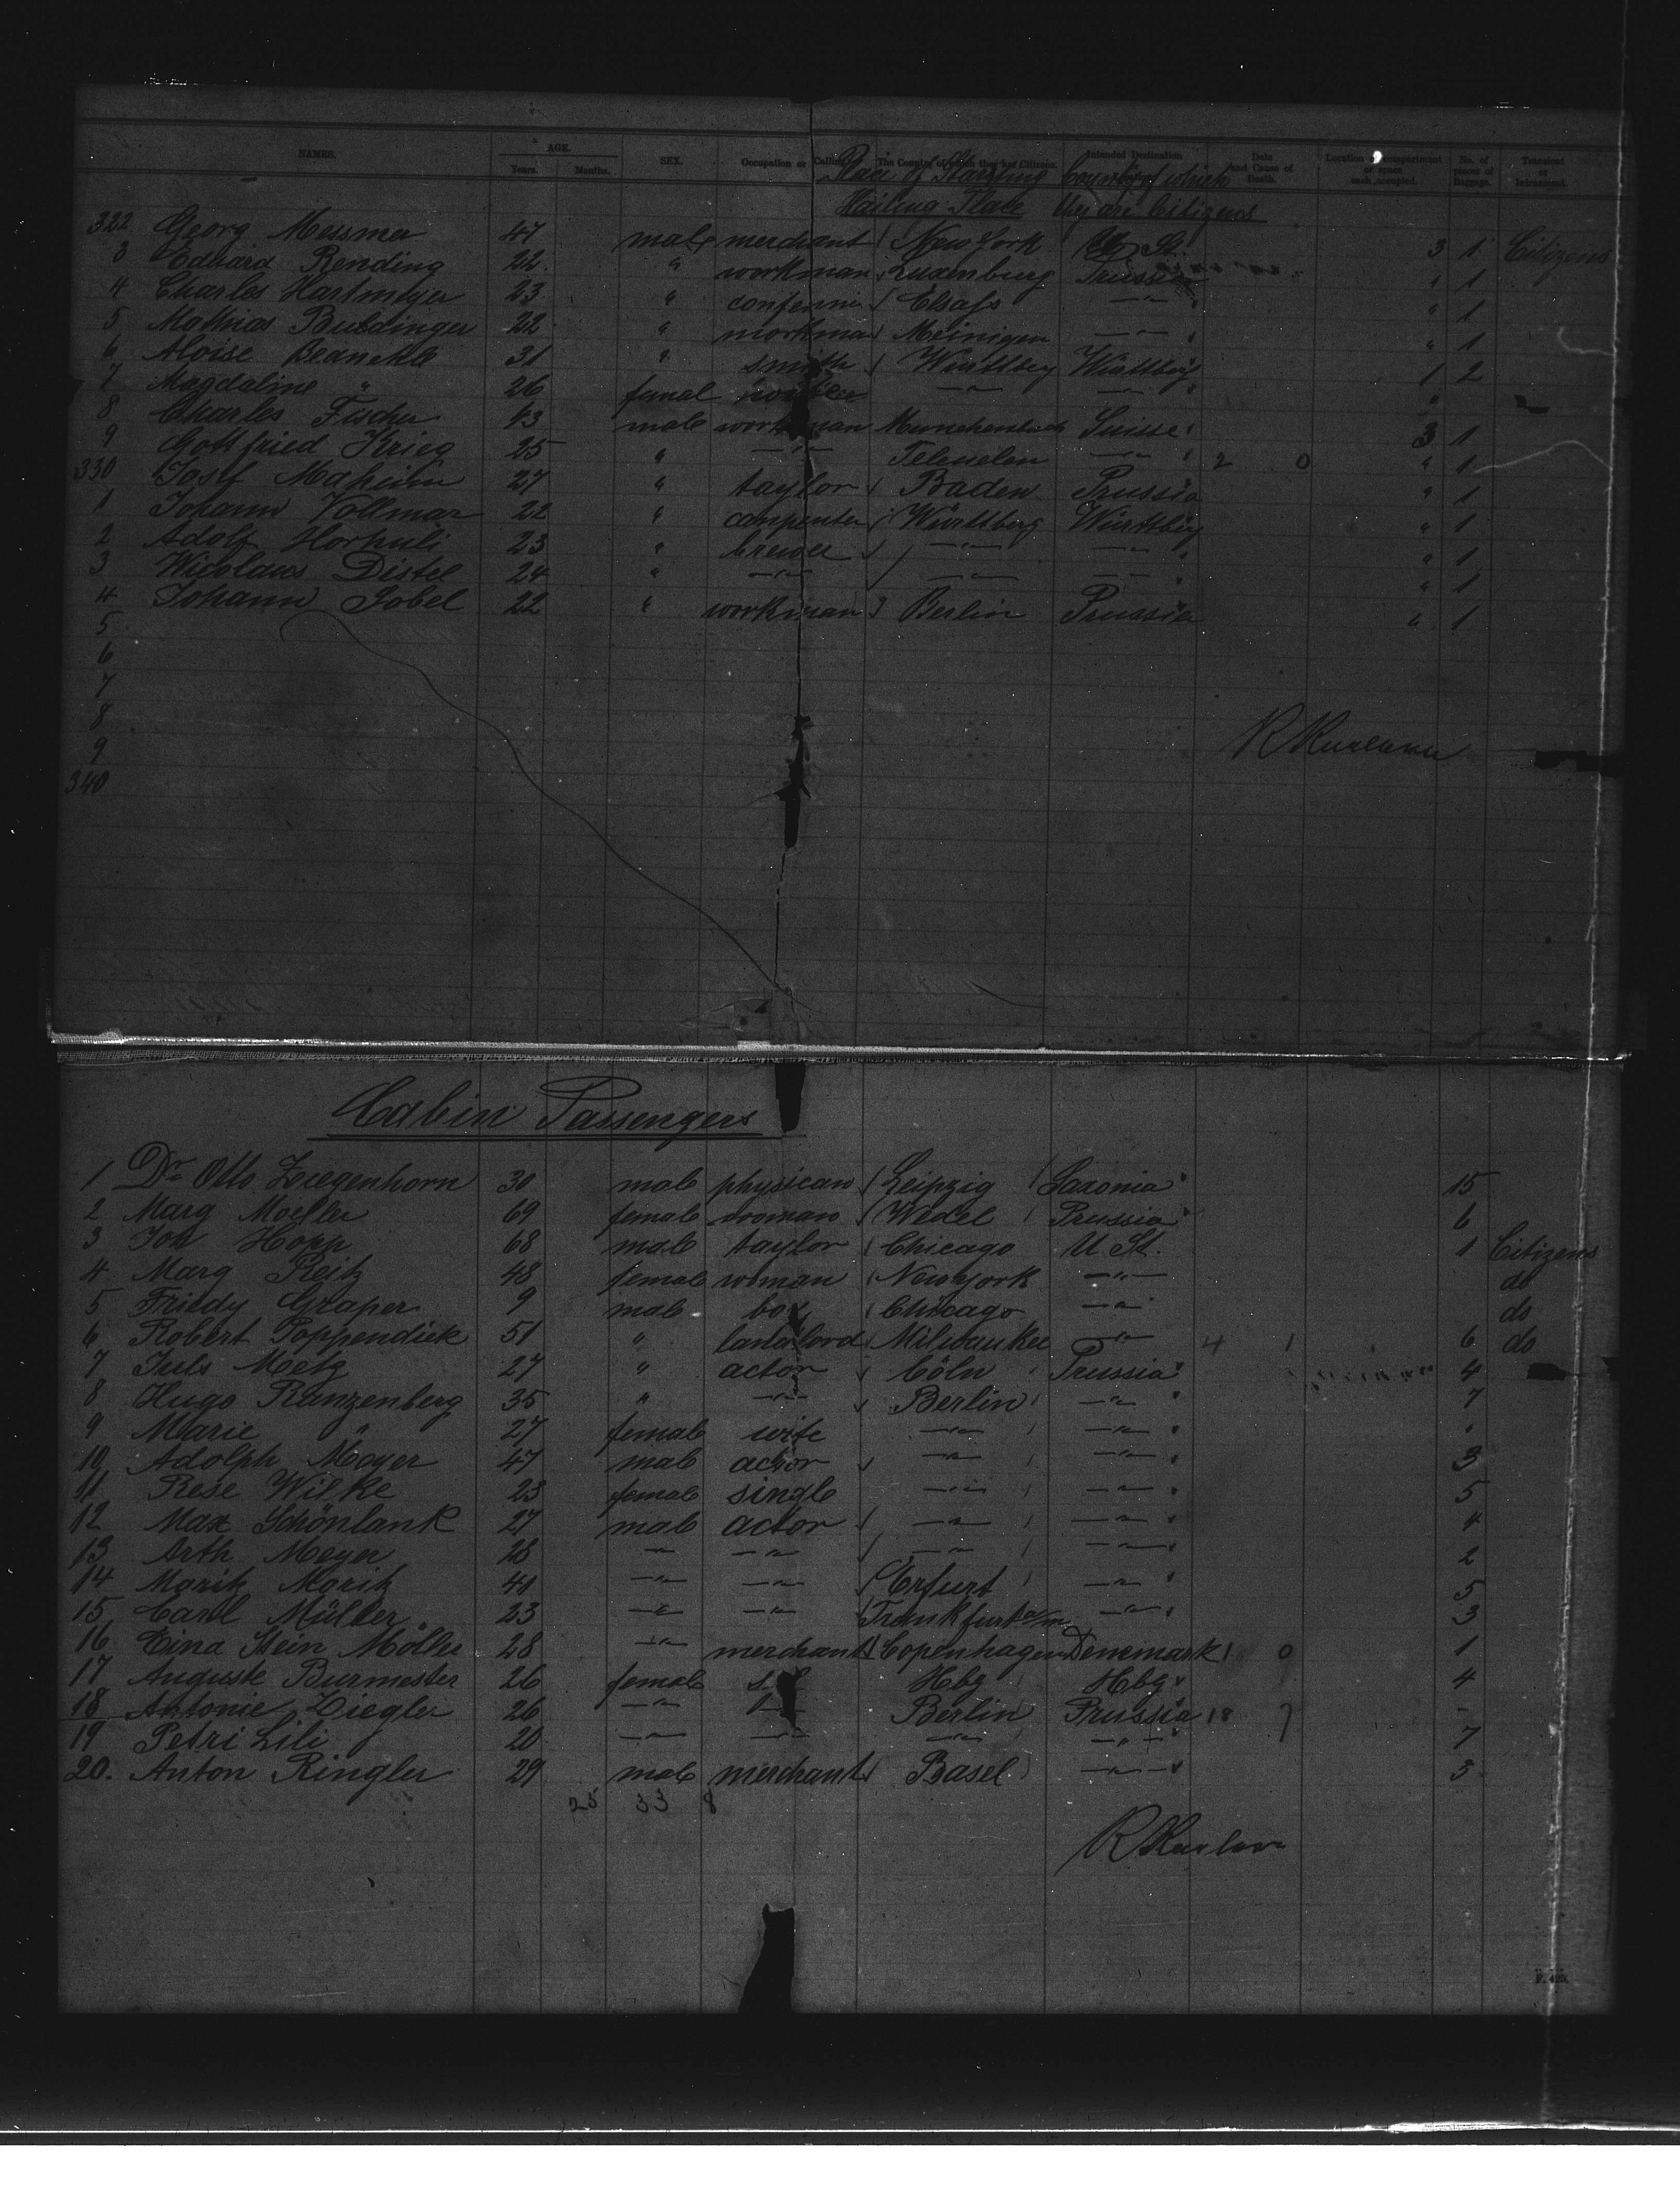 NAMES. AGE. SEX. Occupation or Calling. The Country of which they are Citizens. Intended Destination Date and Cause of Death. Location of compartment or space each occupied. No. of pieces of Baggage. Transient or Intransient.
Years. Months.
Place of Starting Country of which
Hailing Place they are Citizens
322 Georg Messmer 47 male merchant New York U St. 3 1 Citizens
3 Eduard Rending 22 " workman Luxemburg Prussia " 1
4 Charles Hartmeyer 23 " Elsass —"— " 1
5 Mathias 22 " workman Meinigen —"— " 1
6 Aloise 31 " smith Württbey Württbey 1 2
7 Magdaline " 26 femal —"— —"— "
8 Charles Fischer 43 male workman Suisse 3 1
9 Gottfried Krieg 25 " —"— —"— 2 0 " 1
330 Josef 27 " taylor Baden Prussia " 1
1 Johann Vollmar 22 " carpenter Württberg Württbey " 1
2 Adolf 23 " brewer —"— —"— " 1
3 Nicolaus Distel 24 " —"— —"— —"— " 1
4 Johann Jobel 22 " workman Berlin Prussia " 1
5
6
7
8
9
340
Cabin Passengers
1 Dr Otto Ziegenhorn 30 male physician Leipzig Saxonia 15
2 Marg Moeller 69 female woman Wedel Prussia 6
3 Joh Hopp 68 male taylor Chicago U St. 1 Citizens
4 Marg Reitz 48 female woman New York —"— do
5 Friedy Graper 9 male boy Chicago —"— do
6 Robert Poppendiek 51 " landlord Milwaukee —"— 4 1 6 do
7 Juls Metz 27 " actor Cöln Prussia 4
8 Hugo Ranzenberg 35 " —"— Berlin —"— 7
9 Marie " 27 female wife —"— —"— "
10 Adolph Meyer 47 male actor —"— —"— 3
11 Rese Wilke 23 female single —"— —"— 5
12 Max Schönlank 27 male actor —"— —"— 4
13 Arth Meyer 28 —"— —"— —"— —"— 2
14 Moritz Moritz 41 —"— —"— Erfurt —"— 5
15 Carl Müller 23 —"— —"— Frankfurt a/m —"— 3
16 Eina Stein Möller 28 —"— merchant Copenhagen Denemark 1 0 1
17 Auguste Burmester 26 female Hbg Hbg 4
18 Antonie Ziegler 26 —"— Berlin Prussia 18 7 -
19 Petri Lili 20 —"— —"— —"— —"— 7
20. Anton Ringler 29 male merchant Basel —"— 3
25 33 8